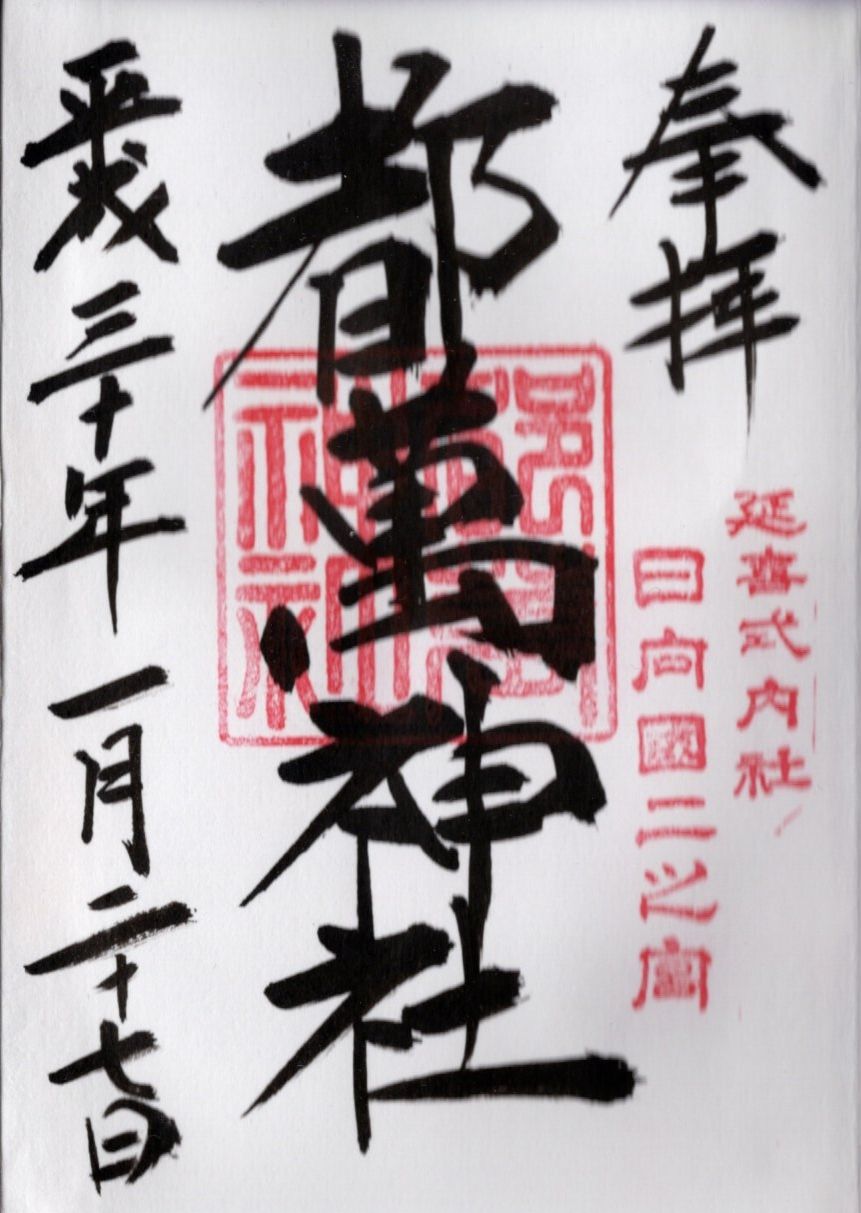 奉拝
延喜式内社
日向國二之宮
都萬神社
平成三十年一月二十七日